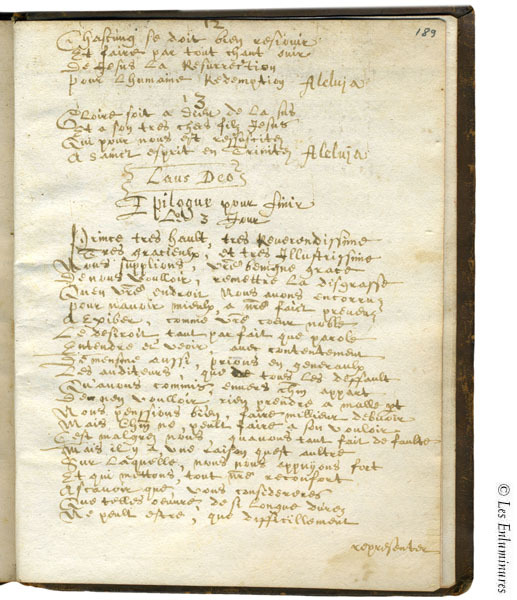 189
12
Chascung se doit bien resiouir
Et faire par tout chant ouir
De Jesus La Resurrection
pour Lhumaine Redemption Aleluia
13
Gloire soit a Dieu de La sus
Et a son tres cher filz Jesus
Qui pour nous est ressuscite
A sainct esprit en Trinite Aleluia
Laus Deo
Epilogue pour finir
Le 3 Jour
Prince tres hault, tres Reverendissime
Tres gracieux, et tres Illustrissime
Nous supplions, vre benigne grace
De nous voulloir, remettre La disgrasse
Quen vre endroit Nous avons encorru
pour navoir mieulx, a vre faict preveu
A exiber, comme vre coeur noble
Le desiroit tant par fait que parole
Entendre et veoir, avec contentement
Semensme aussi, prions en general
Les auditeurs, que de tous les deffault
Quavons commis envers chm appart
De nen voulloir, rien prendre a malle
Nous penssions bien, faire millieur debvoir
Mais chm ne, peult faire a son vouloir
Cest malgre nous, quavons tant fait de faulte
Mais il y a une raison quest aultre
Sur Laquelle, nous nous appuyons fort
Et qui mettons, tout nre reconfort
Ascavoir que, vous considereres
Que telles oeuvres, de si Longue durez
Ne peult estre, que difficillement
representer
© Les Enluminures